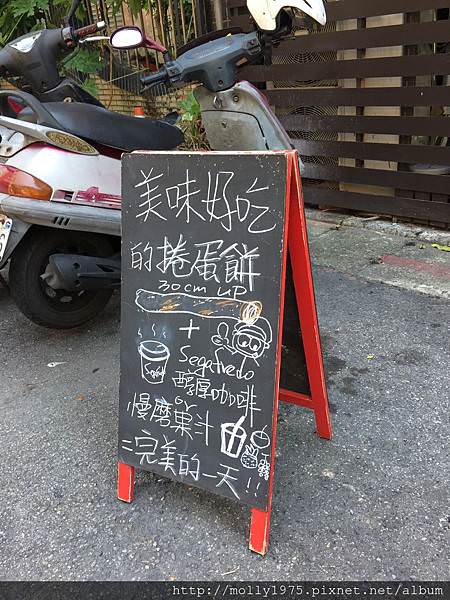 美味好吃
的捲蛋餅
30cm UP
+
Segafredo
醇厚咖啡
慢磨菓汁
=完美的一天!!
http://molly1975.pixnet.net/album